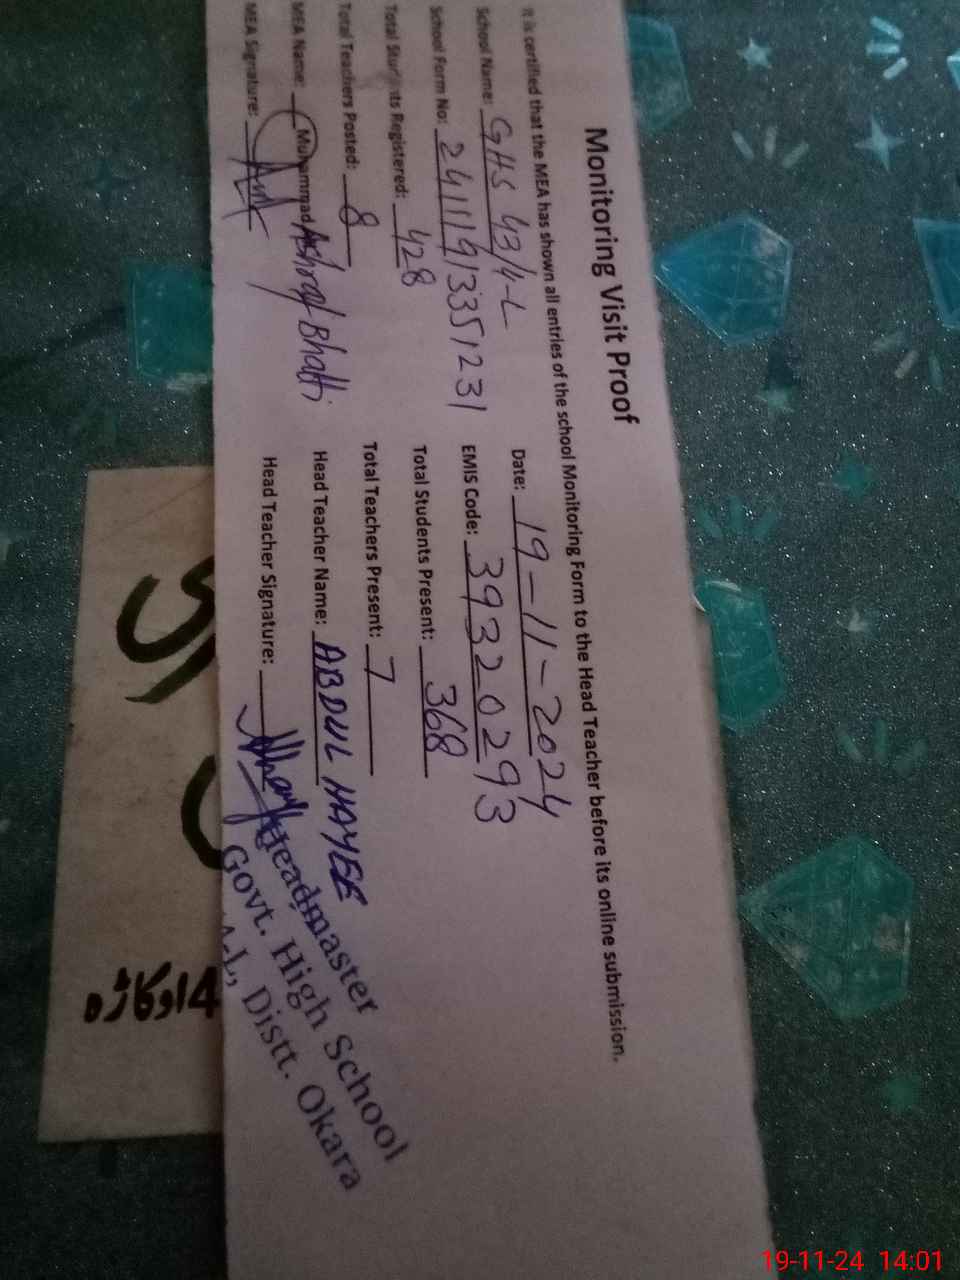 Monitoring Visit Proof
It is certified that the MEA has shown all entries of the school Monitoring Form to the Head Teacher before its online submission.
School Name: GHS 43/4-L Date: 19-11-2024
School Form No: 24111913351231 EMIS Code: 39320293
Total Students Registered: 428 Total Students Present: 368
Total Teachers Posted: 8 Total Teachers Present: 7
MEA Name: Muhammad Ashraf Bhatti Head Teacher Name: ABDUL HAYEE
MEA Signature: Head Teacher Signature:
Headmaster
Govt. High School
4-L, Distt. Okara
14اوکاڑہ
19-11-24 14:01